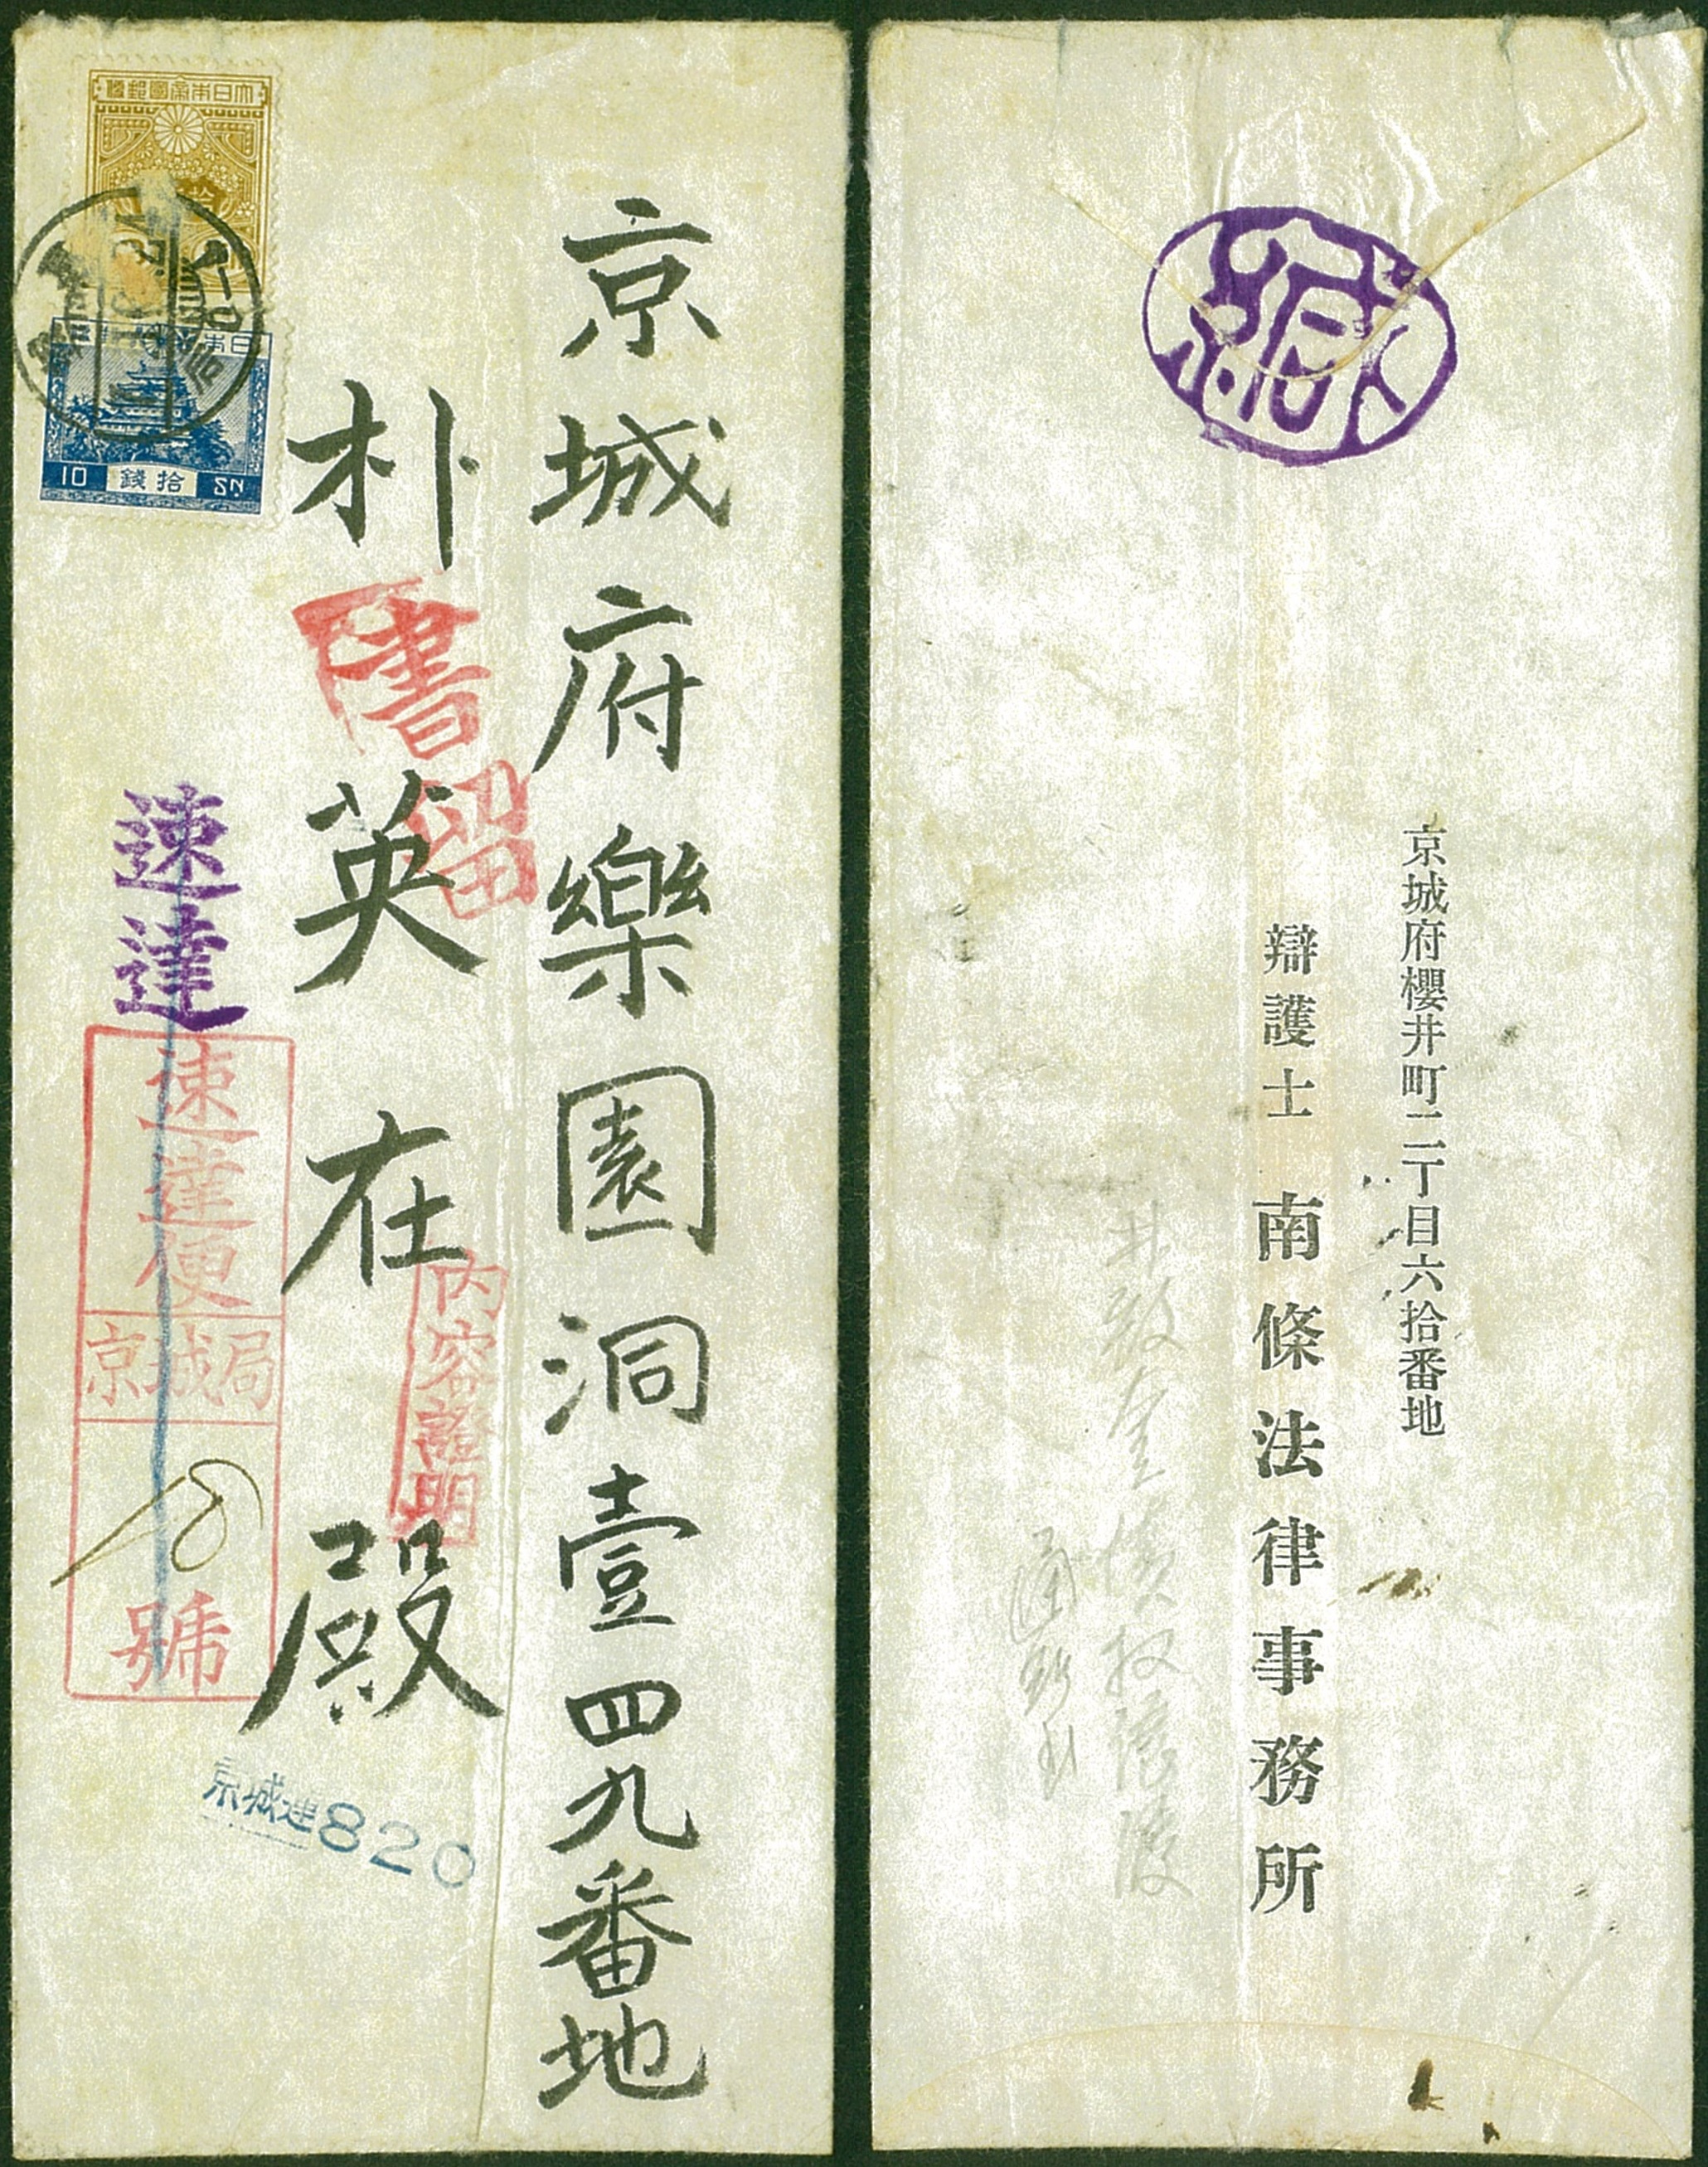 京城府樂園洞壹四九番地
朴英在殿
大日本帝國郵便
日本
10 拾錢 SN
書留
速達
速達便
京城局
號
內容證明
京城速820
緘
京城府櫻井町二丁目六拾番地
辯護士 南條法律事務所